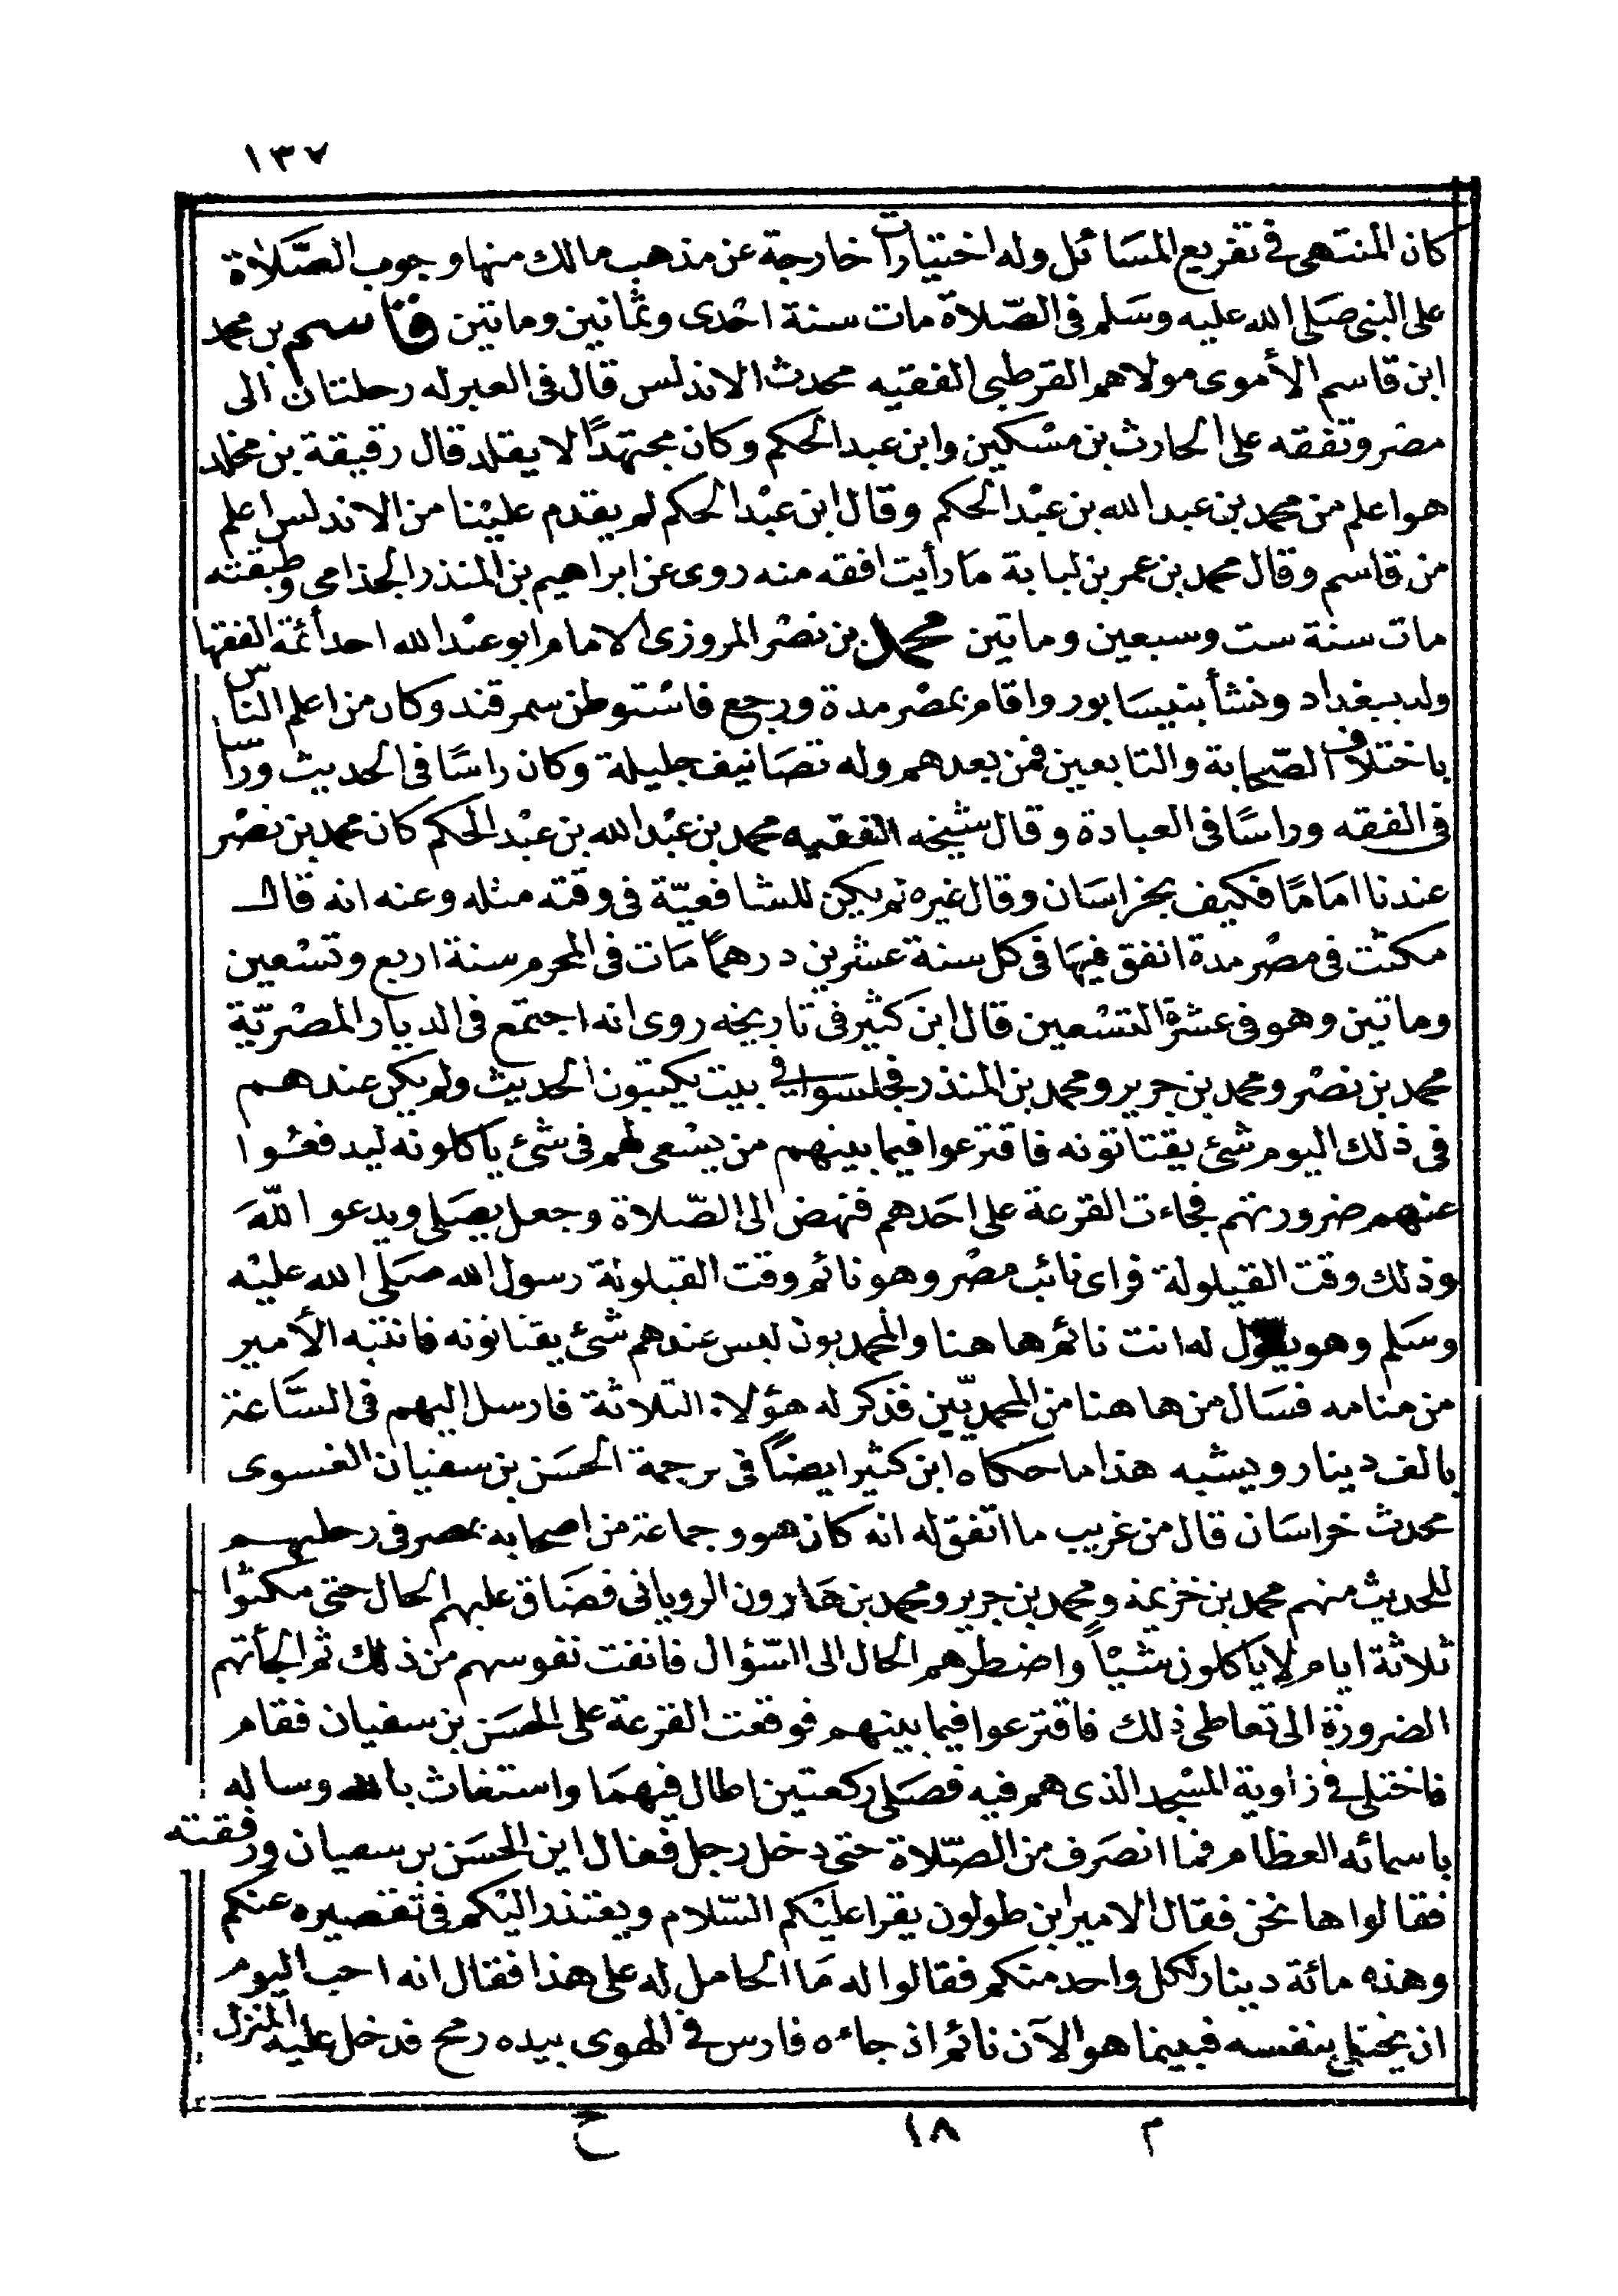 ١٣٧
كان المنتهى في تفريع المسائل وله اختيارات خارجة عن مذهب مالك منها وجوب الصّلاة
على النبى صلى الله عليه وسلم فى الصّلاة مات سنة احدى وثمانين وماتين قاسم بن محمد
ابن قاسم الأموى مولاهم القرطبى الفقيه محدث الاندلس قال فى العبر له رحلتان الى
مصر وتفقه على الحارث بن مسكين وابن عبد الحكم وكان مجتهدًا لا يقلد قال رقيقة بن مخلد
هو اعلم من محمد بن عبد الله بن عبد الحكم وقال ابن عبد الحكم لم يقدم علينا من الاندلس اعلم
من قاسم وقال محمد بن عمر بن لبابة ما رأيت افقه منه روى عن ابراهيم بن المنذر الجذامى وطبقته
مات سنة ست وسبعين وماتين محمد بن نصر المروزى الامام ابو عبد الله احد أئمة الفقها
ولد ببغداد ونشأ بنيسابور واقام بمصر مدة ورجع فاستوطن سمرقند وكان من اعلم الناس
باختلاف الصّحابة والتابعين فمن بعدهم وله تصانيف جليلة وكان راسًا فى الحديث وراسا
فى الفقه وراسًا فى العبادة وقال شيخه الفقيه محمد بن عبد الله بن عبد الحكم كان محمد بن نصر
عندنا امامًا فكيف بخراسان وقال غيره لم يكن للشافعيّة فى وقته مثله وعنه انه قال
مكثت فى مصر مدة انفق فيها فى كل سنة عشرين درهمًا مات فى المحرم سنة اربع وتسعين
وماتين وهو فى عشرة التسعين قال ابن كثير فى تاريخه روى انه اجتمع فى الديار المصريّة
محمد بن نصر ومحمد بن جرير ومحمد بن المنذر فجلسوا فى بيت يكتبون الحديث ولم يكن عندهم
فى ذلك اليوم شئ يقتاتونه فاقترعوا فيما بينهم من يسعى لهم فى شئ ياكلونه ليدفعوا
عنهم ضرورتهم فجاءت القرعة على احدهم فنهض الى الصّلاة وجعل يصلى ويدعو اللّه
وذلك وقت القيلولة فراى نائب مصر وهو نائم وقت القيلولة رسول الله صلى الله عليه
وسلم وهو يقول له انت نائم ها هنا والمحمدبون ليس عندهم شئ يقتاتونه فانتبه الأمير
من منامه فسال من ها هنا من المحمديّين فذكر له هؤلاء الثلاثة فارسل اليهم فى السّاعة
بالف دينار ويشبه هذا ما حكاه ابن كثير ايضًا فى ترجمة الحسن بن سفيان الفسوى
محدث خراسان قال من غريب ما اتفق له انه كان هو وجماعة من اصحابه بمصر فى رحلتهم
للحديث منهم محمد بن خزيمة ومحمد بن جرير ومحمد بن هارون الرويانى فضاق عليهم الحال حتى مكثوا
ثلاثة ايام لا ياكلون شيئًا واضطرهم الحال الى السّؤال فانفت نفوسهم من ذلك ثم الجأتهم
الضرورة الى تعاطى ذلك فاقترعوا فيما بينهم فوقعت القرعة على الحسن بن سفيان فقام
فاختلى فى زاوية المسجد الذى هم فيه فصلى ركعتين اطال فيهما واستغاث بالله وساله
باسمائه العظام فما انصرف من الصّلاة حتى دخل رجل فقال اين الحسن بن سفيان ورفقته
فقالوا ها نحن فقال الامير ابن طولون يقرا عليكم السّلام ويعتذر اليكم فى تقصيره عنكم
وهذه مائة دينار لكل واحد منكم فقالوا له ما الحامل له على هذا فقال انه احب اليوم
ان يختلى بنفسه فبينما هو الآن نائم اذ جاءه فارس فى الهوى بيده رمح فدخل عليه المنزل
م ١٨ ح